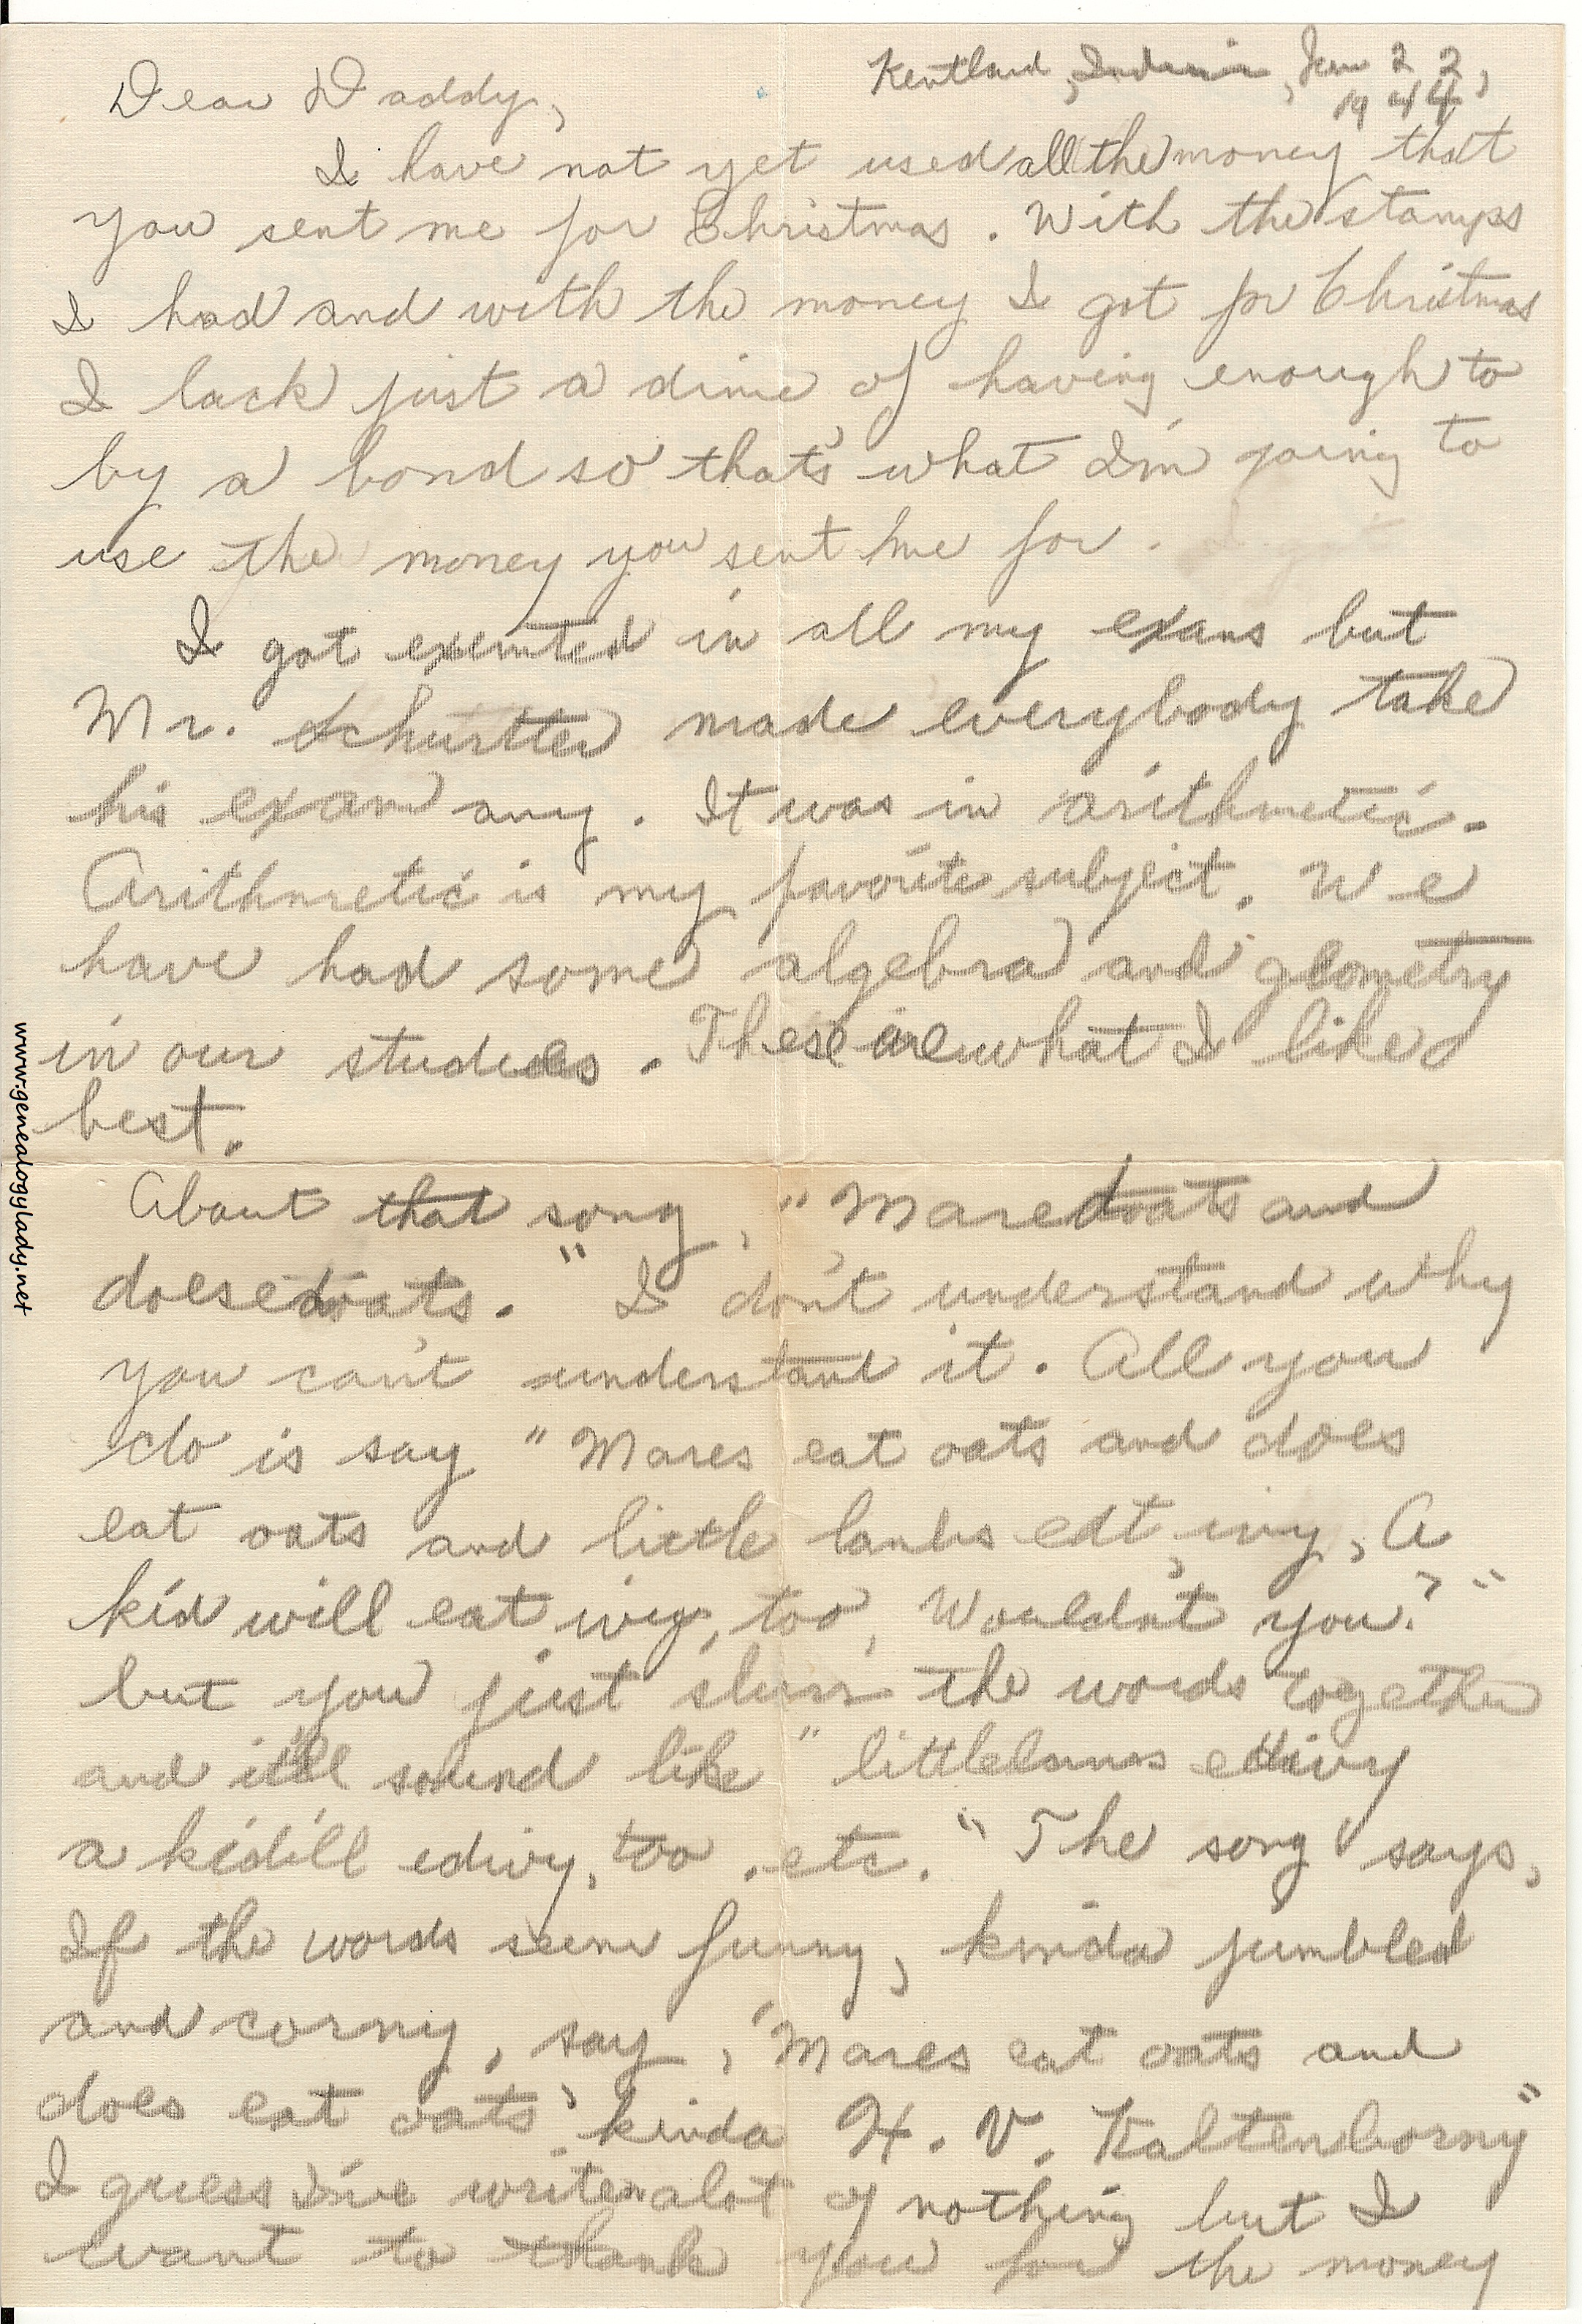 Kentland, Indiana, Jan 22,
1944
Dear Daddy,
I have not yet used all the money that
you sent me for Christmas. With the stamps
I had and with the money I got for Christmas
I lack just a dime of having enough to
by a bond so that's what I'm going to
use the money you sent me for.
I got exemted in all my exams but
Mr. Schurtter made everybody take
his exam any. It was in arithmetic.
Arithmetic is my favorite subject. We
have had some algebra and geometry
in our studies. These are what I liked
best.
About that song, "Maredoats and
doesedoats." I don't understand why
you can't understand it. All you
do is say "Mares eat oats and does
eat oats and little lambs eat, ivy, A
kid will eat ivy, too, Wouldn't you?"
but you just slurr the words together
and it'll sound like "littlelams edivy
a kid'ill edivy, too, etc." The song says,
If the words seem funny, kinda jumbled
and corny, say, 'Mares eat oats and
does eat oats', kinda H. V. Kaltenborny"
I guess I've writen alot of nothing but I
want to thank you for the money
www.genealogylady.net